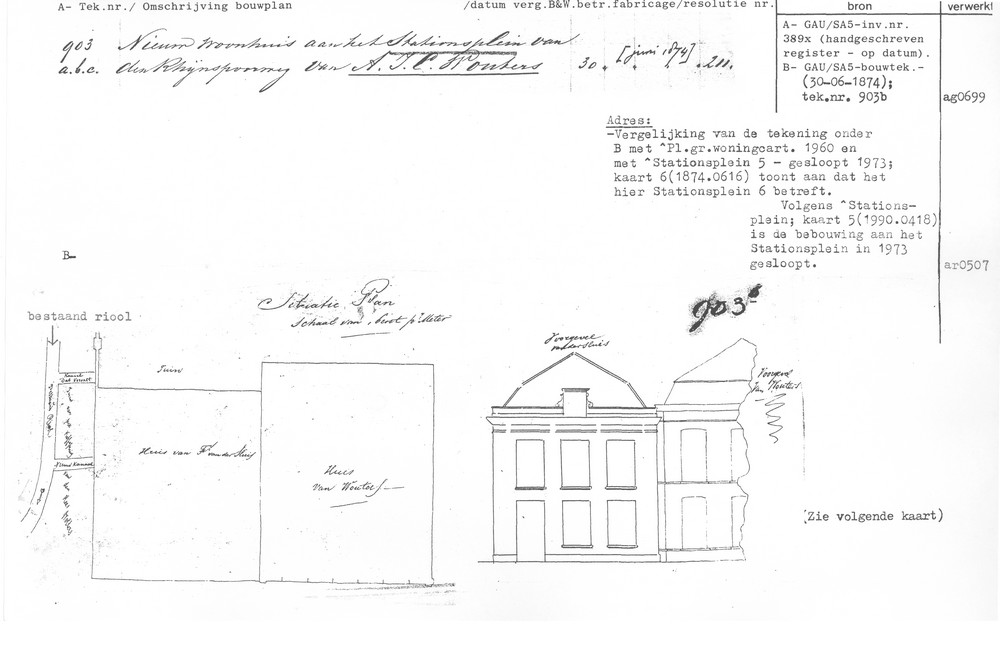 A- Tek.nr./ Omschrijving bouwplan
/datum verg.B&W.betr.fabricage/resolutie nr.
bron
verwerkt
903 Nieuw woonhuis aan het Stationsplein van
a.b.c. den Rhijnspoorweg van A.J.C. Wouters 30 „ [juni 1874] „ 211.
A- GAU/SA5-inv.nr.
389x (handgeschreven
register - op datum).
B- GAU/SA5-bouwtek.-
(30-06-1874);
tek.nr. 903b
ag0699
Adres:
-Vergelijking van de tekening onder
B met ^Pl.gr.woningcart. 1960 en
met ^Stationsplein 5 - gesloopt 1973;
kaart 6(1874.0616) toont aan dat het
hier Stationsplein 6 betreft.
Volgens ^Stations-
plein; kaart 5(1990.0418)
is de bebouwing aan het
Stationsplein in 1973
gesloopt.
ar0507
B-
Situatie Plan
Schaal van
pr Meter
bestaand riool
903 b
Voorgevel
van der Sluis
Voorgevel
van Wouters
Tuin
Huis van Fr van der Sluis
Huis
van Wouters
(Zie volgende kaart)